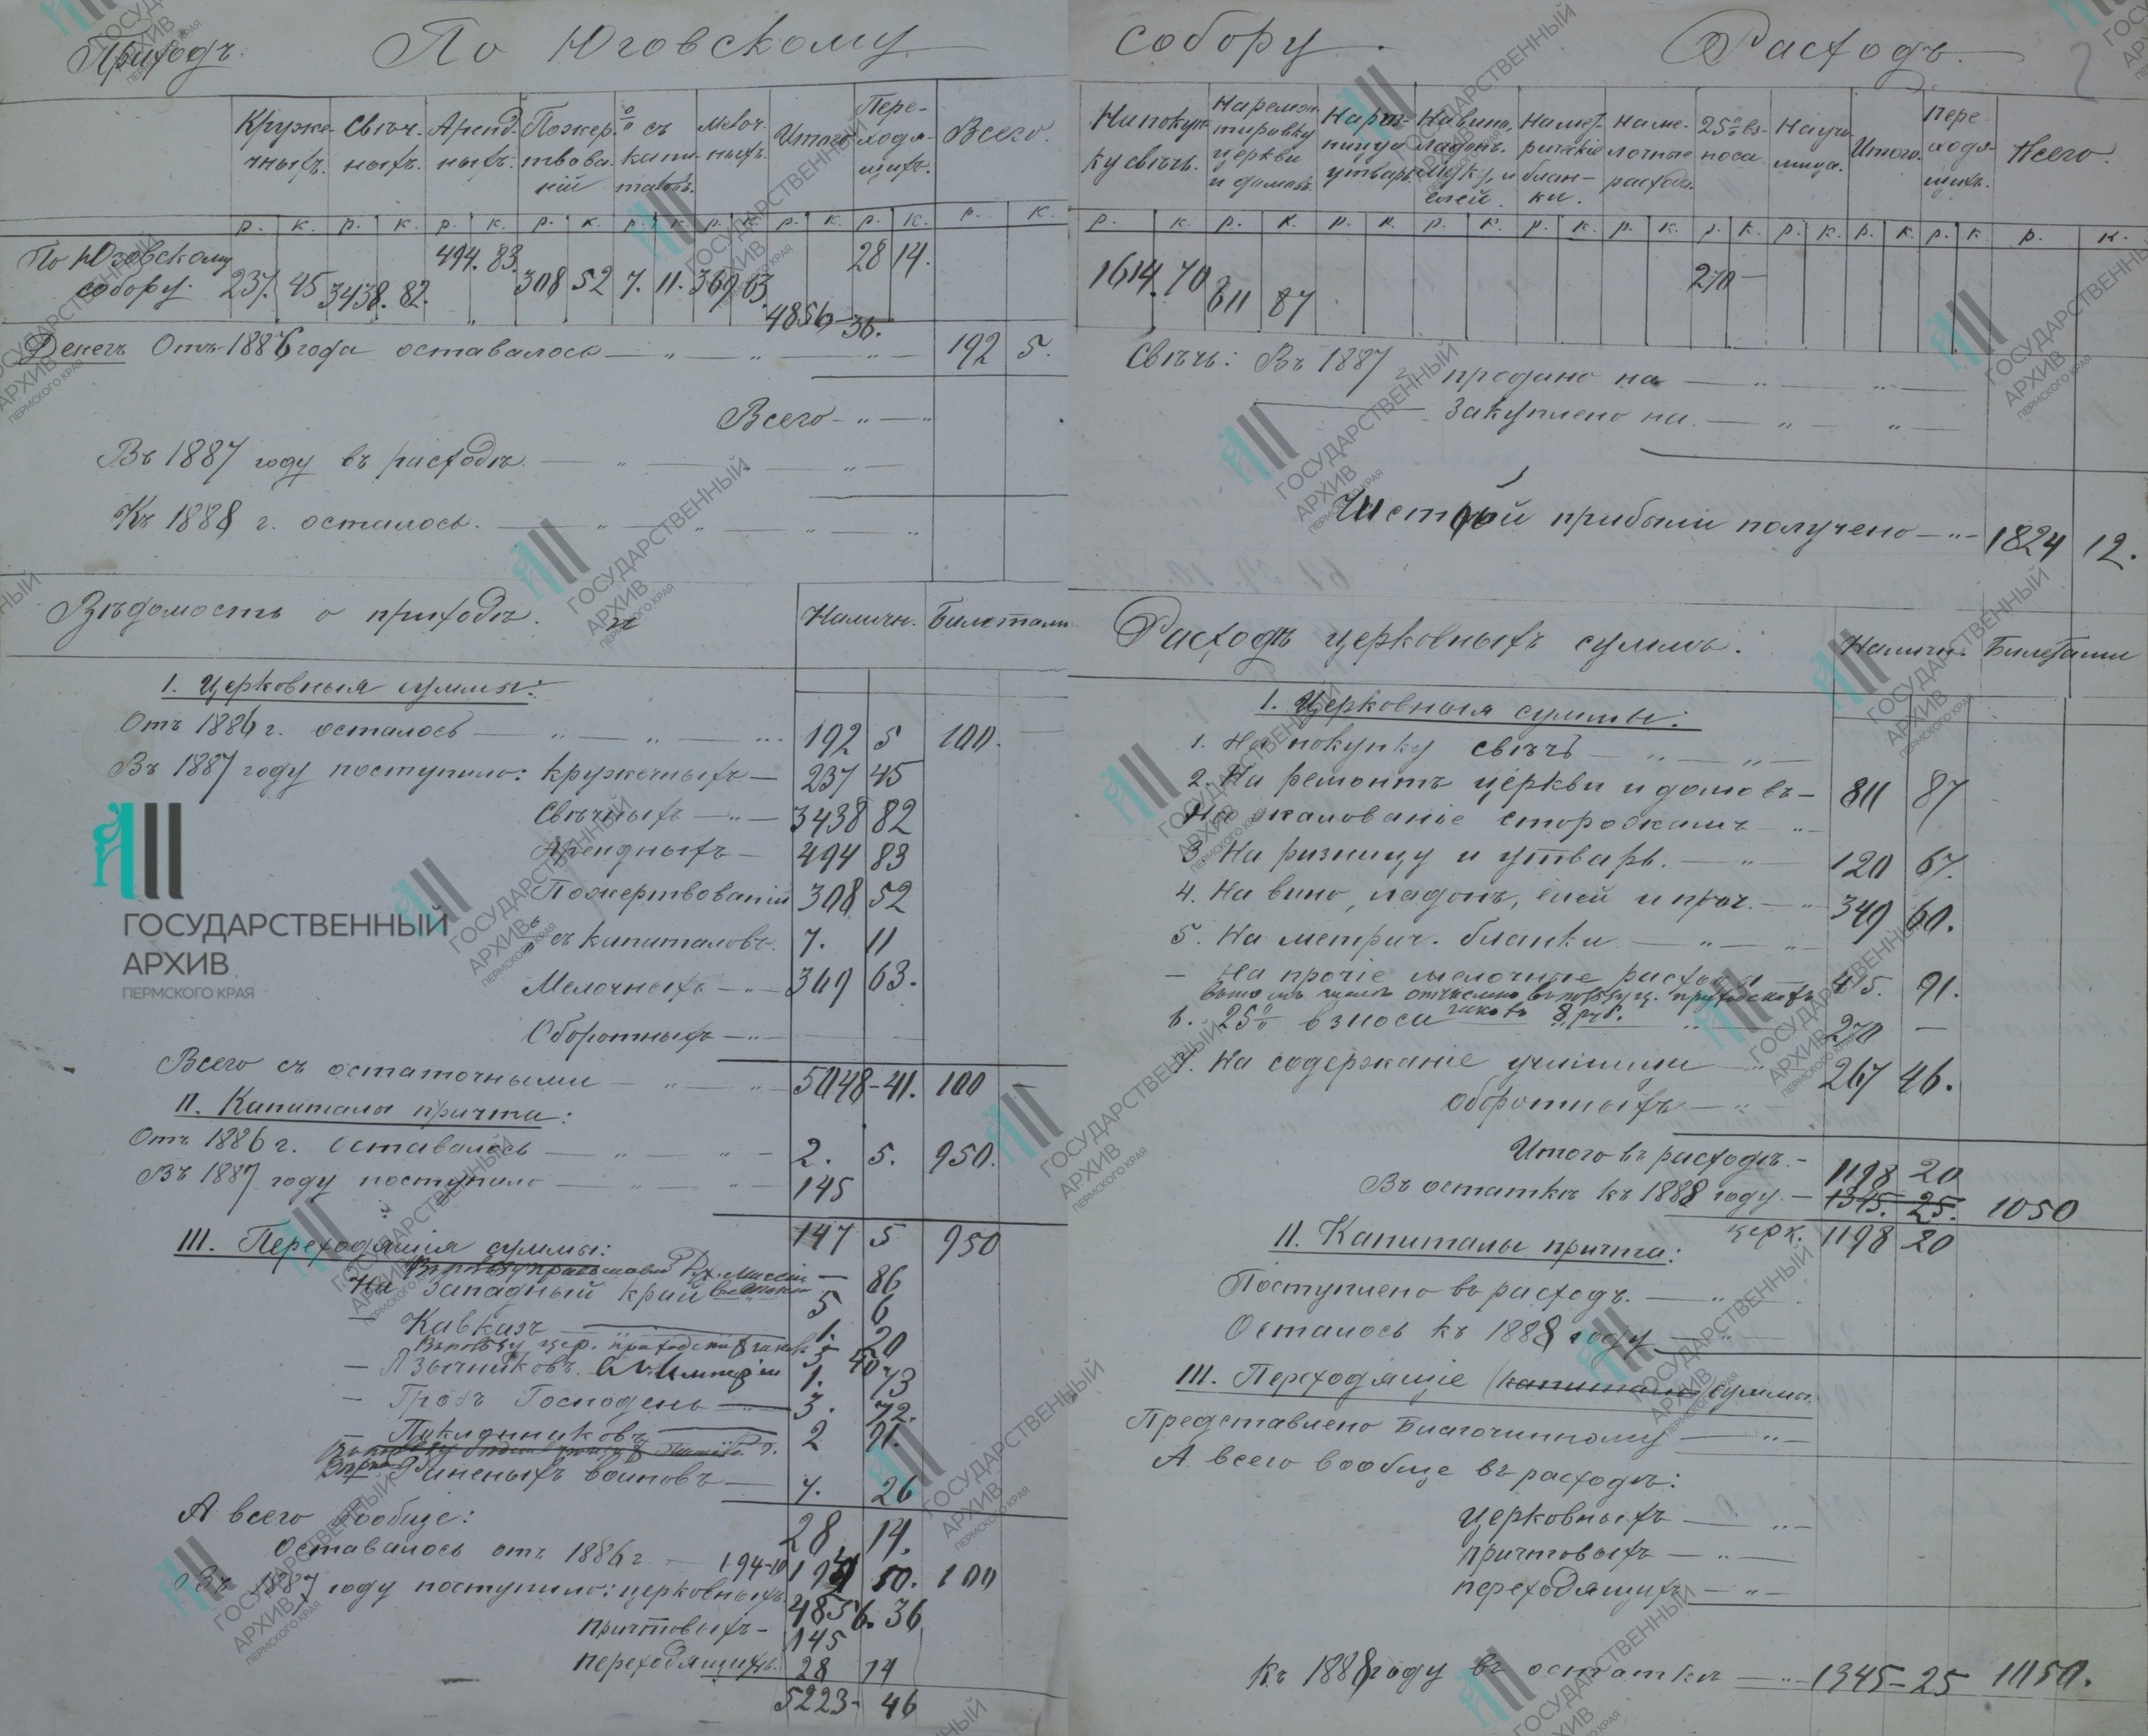 Приходъ. По Юговскому
Круже- Свѣч- Аренд- Пожер- % съ Мелоч- Итого Пере- Всего.
чныхъ. ныхъ. ныхъ. твова- капи- ныхъ. ходя-
ній таловъ. щихъ.
р. к. р. к. р. к. р. к. р. к. р. к. р. к. р. к. р. к.
По Юговскому 494. 83. 28 14.
собору. 237. 45 3438. 82. 308 52 7. 11. 369 63.
4856 - 36.
Денегъ Отъ 1886 года оставалось 192 5.
Всего
Въ 1887 году въ расходѣ.
Къ 1888 г. осталось.
Вѣдомость о приходѣ. Наличн. Билетами
I. Церковныя суммы:
Отъ 1886 г. осталось 192 5 100.
Въ 1887 году поступило: кружечныхъ 237 45
Свѣчныхъ 3438 82
Арендныхъ 494 83
Пожертвованій 308 52
% съ капиталовъ. 7. 11
Мелочныхъ 369 63.
Оборотныхъ
Всего съ остаточными 5048-41. 100
II. Капиталы причта:
Отъ 1886 г. оставалось 2. 5. 950.
Въ 1887 году поступило 145
147 5 950
III. Переходящія суммы:
86
На Западный край 5 6
Кавказъ 1. 20
5 40
1. 73
Гробъ Господень 3. 72.
2 91.
Раненыхъ воиновъ 7. 26
А всего вообще: 28 14.
Оставалось отъ 1886 г. 194-10 50. 100
Въ 1887 году поступило: церковныхъ 4856. 36
причтовыхъ 145
переходящихъ. 28 14
5223- 46
собору. Расходъ.
На покуп- На ремон- На риз- На вино, На мет- На ме- 25% вз- На учи- Итого. Пере- Всего.
ку свѣчъ. тировку ницу и ладонъ. рическія лочные носа лища. ходя-
церкви утварь муку, и блан- расходы. щихъ.
и домовъ. елей. ки.
р. к. р. к. р. к. р. к. р. к. р. к. р. к. р. к. р. к. р. к. р. к.
1614. 70 811 87 270 —
Свѣчъ: Въ 1887 г. продано на
Закуплено на
Чистой прибыли получено 1824 12.
Расходъ церковныхъ суммъ. Наличн. Билетами
I. Церковныя суммы:
1. На покупку свѣчъ
2. На ремонтъ церкви и домовъ 811 87
На жалованіе сторожамъ
3. На ризницу и утварь. 120 67.
4. На вино, ладонъ, елей и проч. 349 60.
5. На метрич. бланки
— На прочіе мелочные расходы 415. 91.
6. 25% взноса 8 руб. 270 —
7. На содержаніе училищъ 267 46.
Оборотныхъ
Итого въ расходѣ. 1198 20
Въ остаткѣ къ 1888 году. 1345. 25. 1050
церк. 1198 20
II. Капиталы причта:
Поступлено въ расходъ.
Осталось къ 1888 году
III. Переходящіе (капиталы) суммы.
Представлено Благочинному
А всего вообще въ расходѣ:
Церковныхъ
причтовыхъ
переходящихъ
Къ 1888 году въ остаткѣ 1345-25 1050.
ГОСУДАРСТВЕННЫЙ
АРХИВ
ПЕРМСКОГО КРАЯ